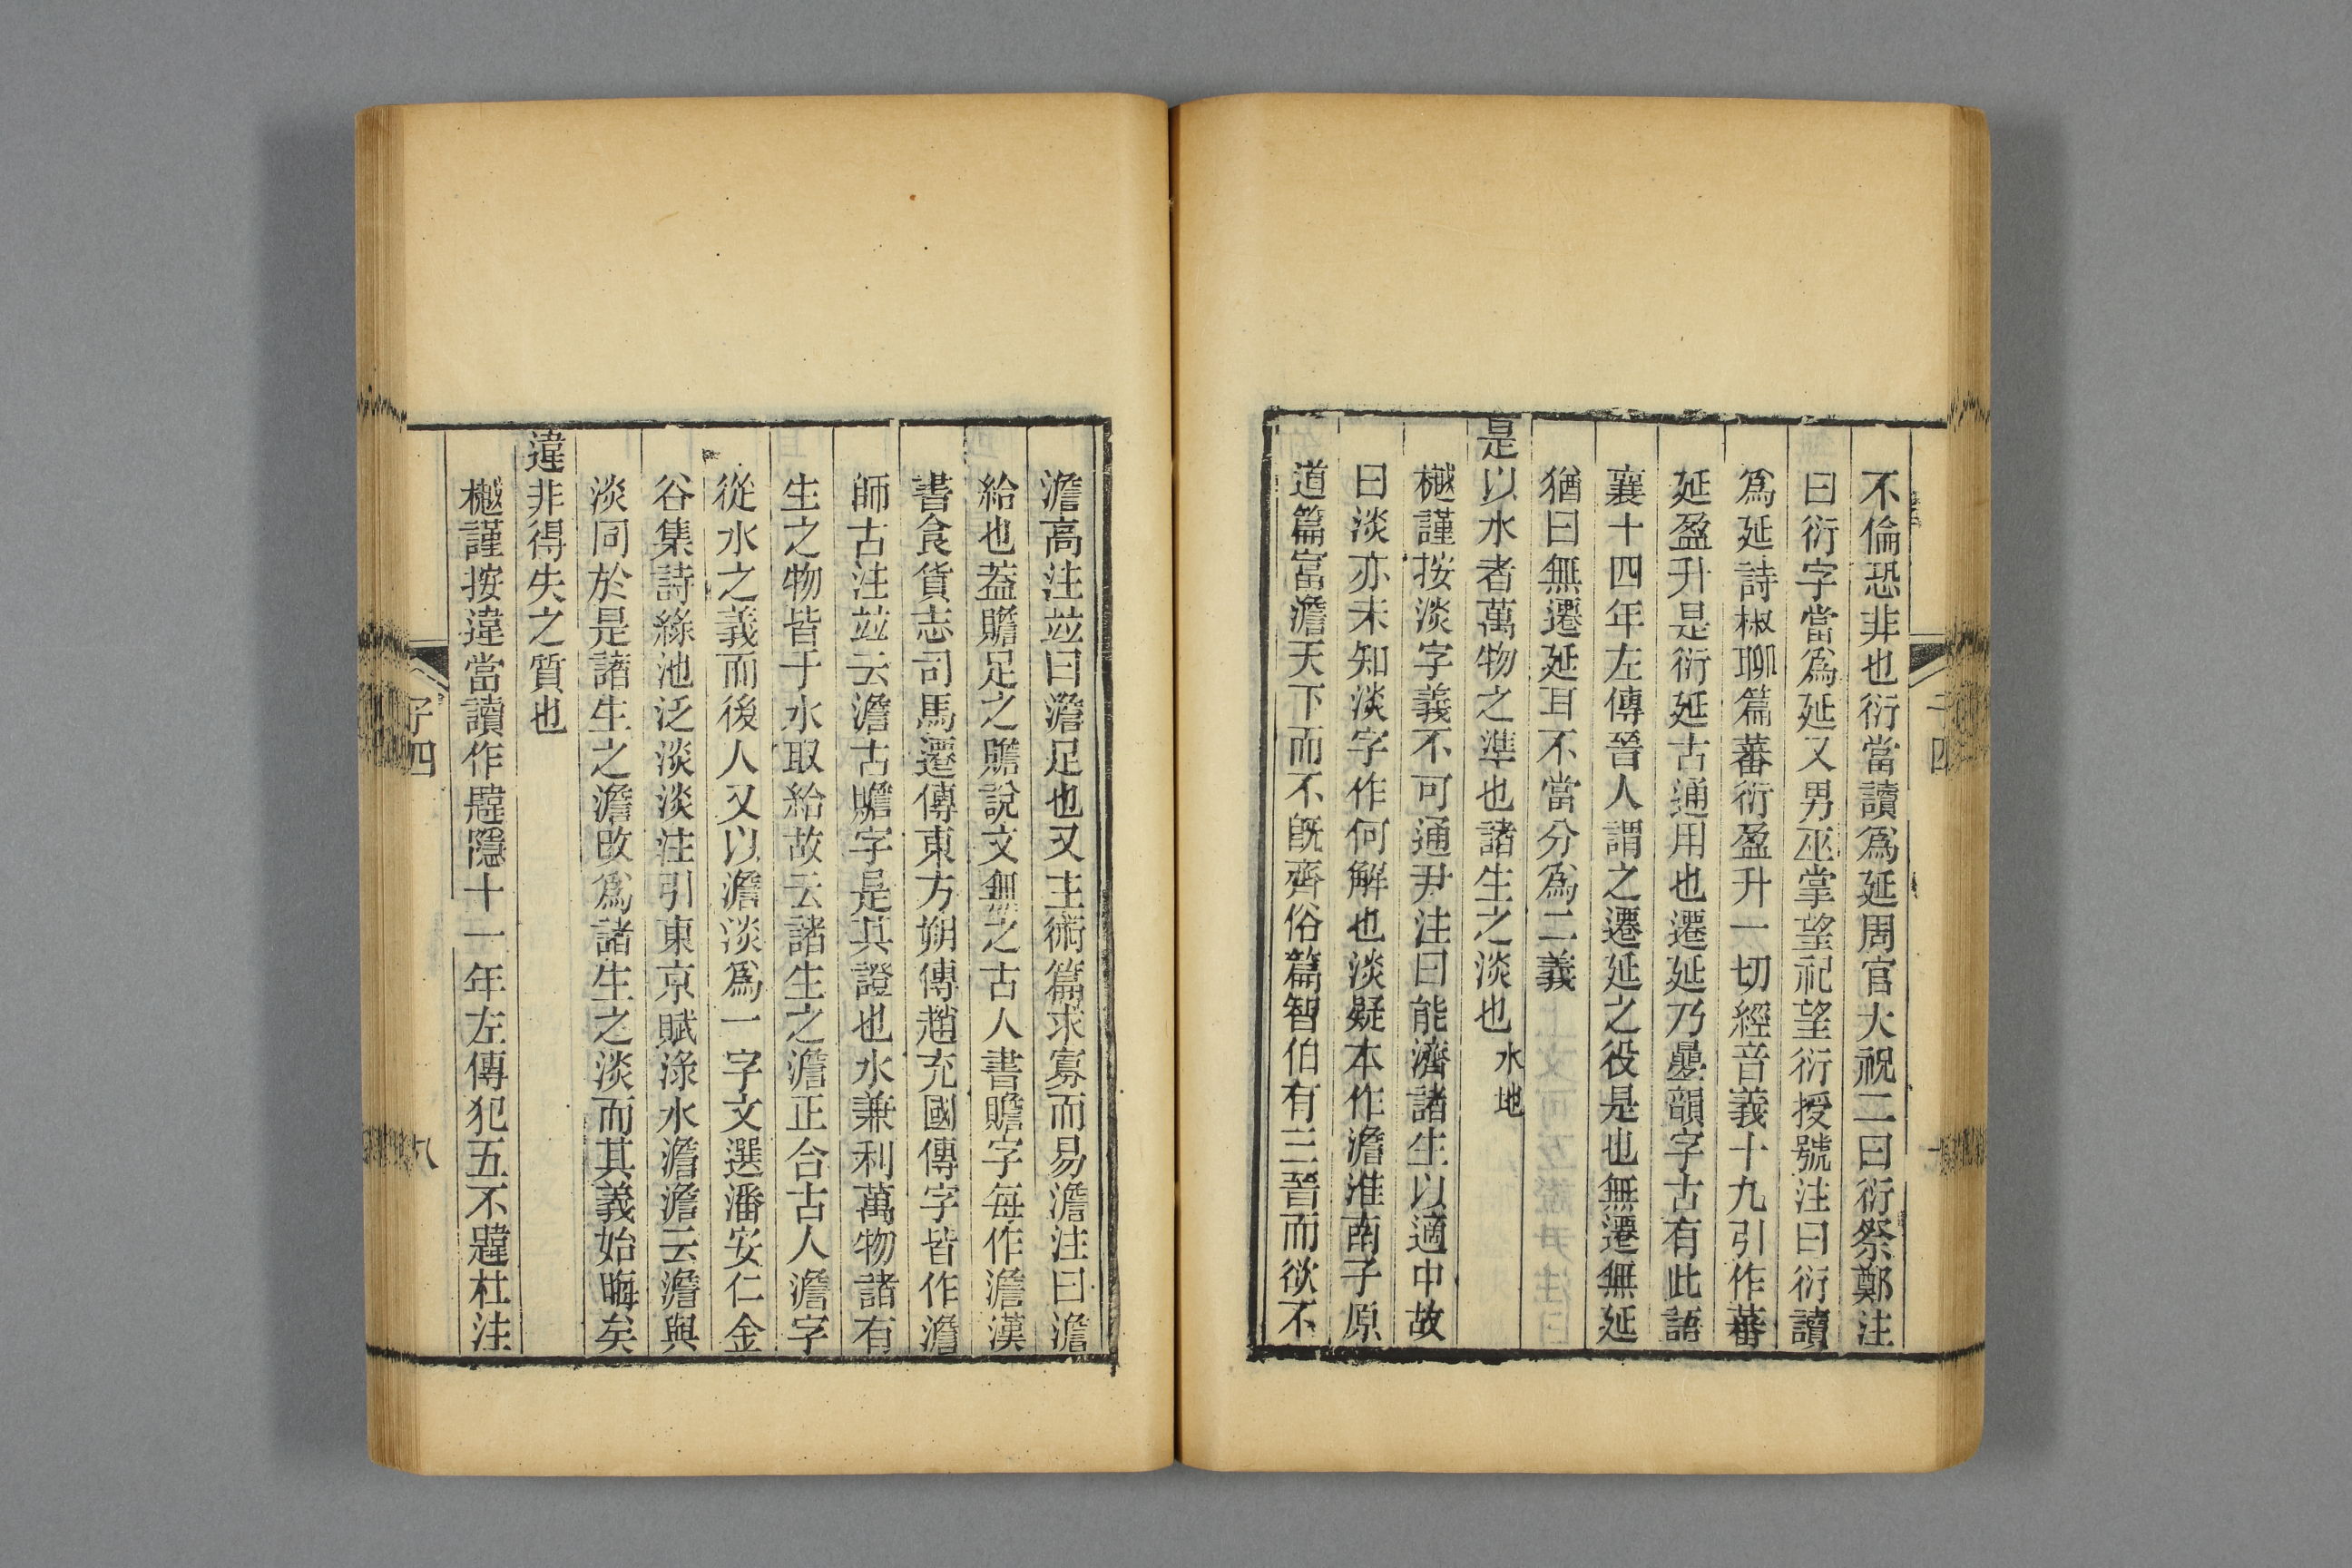 不倫恐非也衍當讀爲延周官大祝二曰衍祭鄭注
曰衍字當爲延又男巫掌望祀望衍授號注曰衍讀
爲延詩椒聊篇蕃衍盈升一切經音義十九引作蕃
延盈升是衍延古通用也遷延乃曡韻字古有此語
襄十四年左傳晉人謂之遷延之役是也無遷無延
猶曰無遷延耳不當分爲二義
是以水者萬物之準也諸生之淡也水地
樾謹按淡字義不可通尹注曰能濟諸生以適中故
曰淡亦未知淡字作何解也淡疑本作澹淮南子原
道篇富澹天下而不旣齊俗篇智伯有三晉而欲不
澹高注竝曰澹足也又主術篇求寡而易澹注曰澹
給也葢贍足之贍說文無之古人書贍字每作澹漢
書食貨志司馬遷傳東方朔傳趙充國傳字皆作澹
師古注竝云澹古贍字是其證也水兼利萬物諸有
生之物皆于水取給故云諸生之澹正合古人澹字
從水之義而後人又以澹淡爲一字文選潘安仁金
谷集詩綠池泛淡淡注引東京賦淥水澹澹云澹與
淡同於是諸生之澹改爲諸生之淡而其義始晦矣
違非得失之質也
樾謹按違當讀作韙隱十一年左傳犯五不韙杜注
子四
八